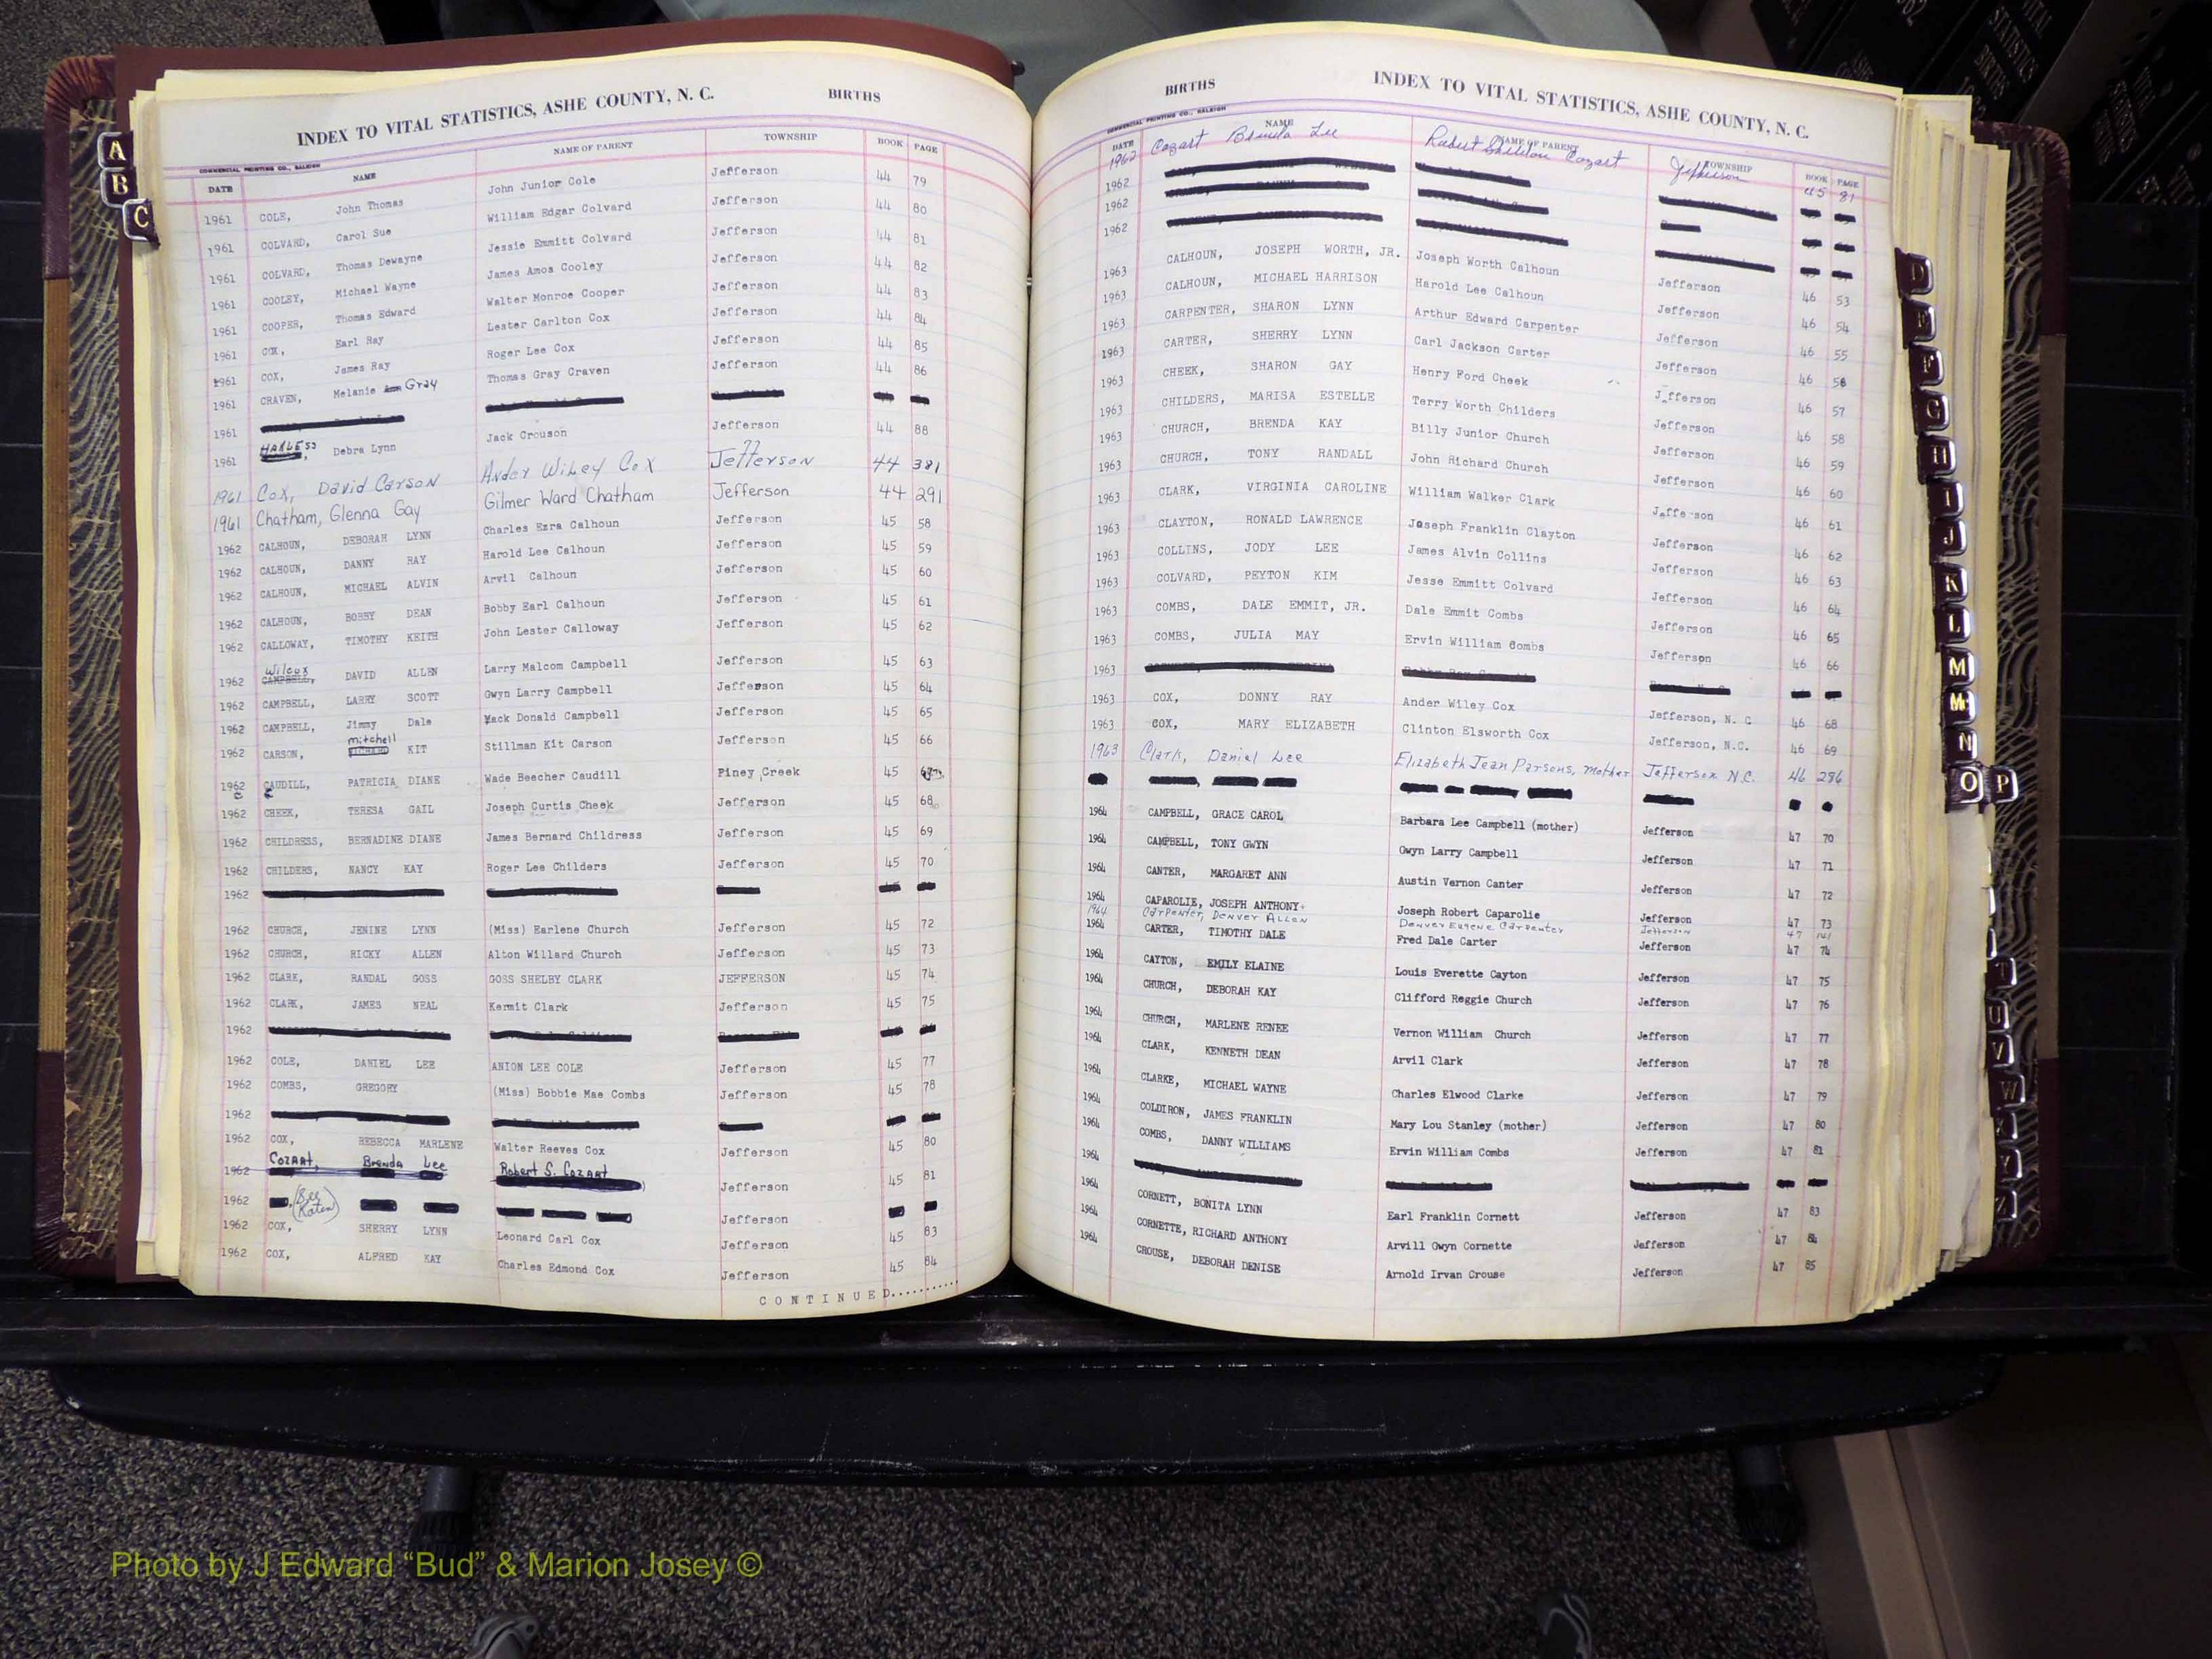 INDEX TO VITAL STATISTICS, ASHE COUNTY, N. C. BIRTHS
COMMERCIAL PRINTING CO., RALEIGH
DATE NAME NAME OF PARENT TOWNSHIP BOOK PAGE
1961 COLE, John Thomas John Junior Cole Jefferson 44 79
1961 COLVARD, Carol Sue William Edgar Colvard Jefferson 44 80
1961 COLVARD, Thomas Dewayne Jessie Emmitt Colvard Jefferson 44 81
1961 COOLEY, Michael Wayne James Amos Cooley Jefferson 44 82
1961 COOPER, Thomas Edward Walter Monroe Cooper Jefferson 44 83
1961 COX, Earl Ray Lester Carlton Cox Jefferson 44 84
1961 COX, James Ray Roger Lee Cox Jefferson 44 85
1961 CRAVEN, Melanie Ann Gray Thomas Gray Craven Jefferson 44 86
1961
1961 HARLESS, Debra Lynn Jack Crouson Jefferson 44 88
1961 Cox, David Carson Ander Wiley Cox Jefferson 44 381
1961 Chatham, Glenna Gay Gilmer Ward Chatham Jefferson 44 291
1962 CALHOUN, DEBORAH LYNN Charles Ezra Calhoun Jefferson 45 58
1962 CALHOUN, DANNY RAY Harold Lee Calhoun Jefferson 45 59
1962 CALHOUN, MICHAEL ALVIN Arvil Calhoun Jefferson 45 60
1962 CALHOUN, BOBBY DEAN Bobby Earl Calhoun Jefferson 45 61
1962 CALLOWAY, TIMOTHY KEITH John Lester Calloway Jefferson 45 62
Wilcox
1962 CAMPBELL, DAVID ALLEN Larry Malcom Campbell Jefferson 45 63
1962 CAMPBELL, LARRY SCOTT Gwyn Larry Campbell Jefferson 45 64
1962 CAMPBELL, Jimmy Dale Mack Donald Campbell Jefferson 45 65
mitchell
1962 CARSON, KIT Stillman Kit Carson Jefferson 45 66
1962 CAUDILL, PATRICIA DIANE Wade Beecher Caudill Piney Creek 45 67
1962 CHEEK, TERESA GAIL Joseph Curtis Cheek Jefferson 45 68
1962 CHILDRESS, BERNADINE DIANE James Bernard Childress Jefferson 45 69
1962 CHILDERS, NANCY KAY Roger Lee Childers Jefferson 45 70
1962
1962 CHURCH, JENINE LYNN (Miss) Earlene Church Jefferson 45 72
1962 CHURCH, RICKY ALLEN Alton Willard Church Jefferson 45 73
1962 CLARK, RANDAL GOSS GOSS SHELBY CLARK JEFFERSON 45 74
1962 CLARK, JAMES NEAL Kermit Clark Jefferson 45 75
1962
1962 COLE, DANIEL LEE ANION LEE COLE Jefferson 45 77
1962 COMBS, GREGORY (Miss) Bobbie Mae Combs Jefferson 45 78
1962
1962 COX, REBECCA MARLENE Walter Reeves Cox Jefferson 45 80
1962 COZART, Brenda Lee Robert S. Cozart Jefferson 45 81
1962 (See Katen) Jefferson
1962 COX, SHERRY LYNN Leonard Carl Cox Jefferson 45 83
1962 COX, ALFRED KAY Charles Edmond Cox Jefferson 45 84
CONTINUED..........
BIRTHS INDEX TO VITAL STATISTICS, ASHE COUNTY, N. C.
COMMERCIAL PRINTING CO., RALEIGH
DATE NAME NAME OF PARENT TOWNSHIP BOOK PAGE
1962 Cozart Brenda Lee Robert Sheldon Cozart Jefferson 45 81
1962
1962
1962
1963 CALHOUN, JOSEPH WORTH, JR. Joseph Worth Calhoun Jefferson 46 53
1963 CALHOUN, MICHAEL HARRISON Harold Lee Calhoun Jefferson 46 54
1963 CARPENTER, SHARON LYNN Arthur Edward Carpenter Jefferson 46 55
1963 CARTER, SHERRY LYNN Carl Jackson Carter Jefferson 46 56
1963 CHEEK, SHARON GAY Henry Ford Cheek Jefferson 46 57
1963 CHILDERS, MARISA ESTELLE Terry Worth Childers Jefferson 46 58
1963 CHURCH, BRENDA KAY Billy Junior Church Jefferson 46 59
1963 CHURCH, TONY RANDALL John Richard Church Jefferson 46 60
1963 CLARK, VIRGINIA CAROLINE William Walker Clark Jefferson 46 61
1963 CLAYTON, RONALD LAWRENCE Joseph Franklin Clayton Jefferson 46 62
1963 COLLINS, JODY LEE James Alvin Collins Jefferson 46 63
1963 COLVARD, PEYTON KIM Jesse Emmitt Colvard Jefferson 46 64
1963 COMBS, DALE EMMIT, JR. Dale Emmit Combs Jefferson 46 65
1963 COMBS, JULIA MAY Ervin William Combs Jefferson 46 66
1963
1963 COX, DONNY RAY Ander Wiley Cox Jefferson, N. C 46 68
1963 COX, MARY ELIZABETH Clinton Elsworth Cox Jefferson, N.C. 46 69
1963 Clark, Daniel Lee Elizabeth Jean Parsons, mother Jefferson N.C. 46 286
1964 CAMPBELL, GRACE CAROL Barbara Lee Campbell (mother) Jefferson 47 70
1964 CAMPBELL, TONY GWYN Gwyn Larry Campbell Jefferson 47 71
1964 CANTER, MARGARET ANN Austin Vernon Canter Jefferson 47 72
1964 CAPAROLIE, JOSEPH ANTHONY Joseph Robert Caparolie Jefferson 47 73
1964 Carpenter, Denver Allen Denver Eugene Carpenter Jefferson 47 141
1964 CARTER, TIMOTHY DALE Fred Dale Carter Jefferson 47 74
1964 CAYTON, EMILY ELAINE Louis Everette Cayton Jefferson 47 75
1964 CHURCH, DEBORAH KAY Clifford Reggie Church Jefferson 47 76
1964 CHURCH, MARLENE RENEE Vernon William Church Jefferson 47 77
1964 CLARK, KENNETH DEAN Arvil Clark Jefferson 47 78
1964 CLARKE, MICHAEL WAYNE Charles Elwood Clarke Jefferson 47 79
1964 COLDIRON, JAMES FRANKLIN Mary Lou Stanley (mother) Jefferson 47 80
1964 COMBS, DANNY WILLIAMS Ervin William Combs Jefferson 47 81
1964
1964 CORNETT, BONITA LYNN Earl Franklin Cornett Jefferson 47 83
1964 CORNETTE, RICHARD ANTHONY Arvill Gwyn Cornette Jefferson 47 84
1964 CROUSE, DEBORAH DENISE Arnold Irvan Crouse Jefferson 47 85
A
B
C
D
E
F
G
H
I
J
K
L
M
Mc
N
O P
T
U
V
W
Y
Z
VITAL STATISTICS
Photo by J Edward “Bud” & Marion Josey ©